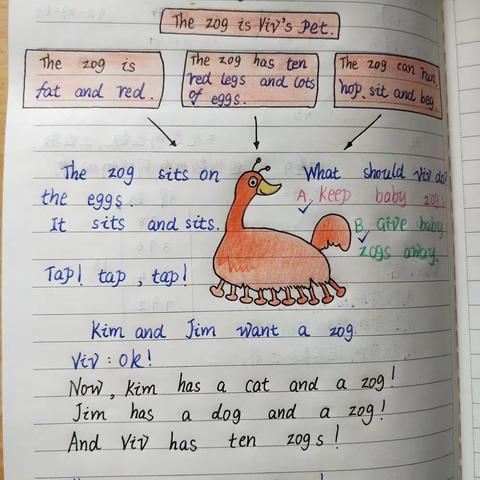 The zog is Viv's Pet.
The zog is
fat and red.
The zog has ten
red legs and lots
of eggs.
The zog can run,
hop, sit and beg.
The zog sits on
the eggs.
It sits and sits.
Tap! tap, tap!
What should Viv do?
A. Keep baby zogs.
B. Give baby
zogs away.
Kim and Jim want a zog.
Viv: Ok!
Now, Kim has a cat and a zog!
Jim has a dog and a zog!
And Viv has ten zogs!